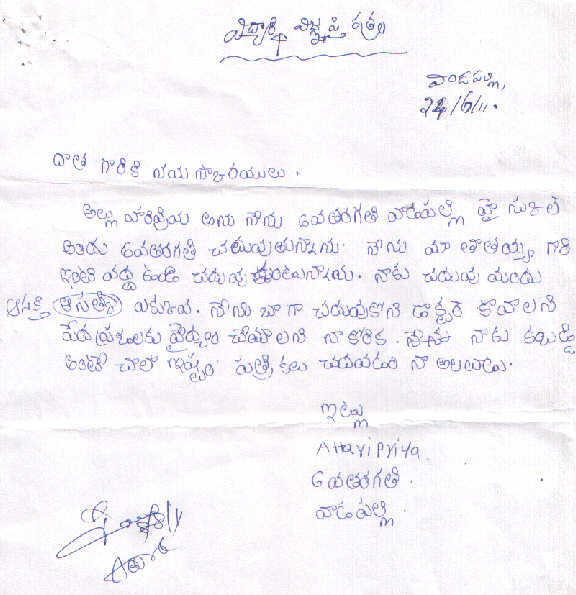 విద్యార్థి విజ్ఞప్తి పత్రం
వాడపల్లి,
24/6/11.
దాత గారికి నమస్కారములు.
అల్లు హరిప్రియ అను నేను 6వతరగతి వాడపల్లి హై స్కూల్
నందు 6వతరగతి చదువుతున్నాను. నేను మా తాతయ్య గారి
ఇంటి వద్ద ఉండి చదువు కుంటున్నాను. నాకు చదువు యందు
ఆసక్తి ఎక్కువ. నేను బాగా చదువుకొని డాక్టర్ కావాలని
పేద ప్రజలకు వైద్యం చేయాలని నా కోరిక. నాకు
అంటే చాలా ఇష్టం పుస్తకాలు చదవడం నా అలవాటు.
ఇట్లు
A Haripriya.
6వతరగతి.
వాడపల్లి